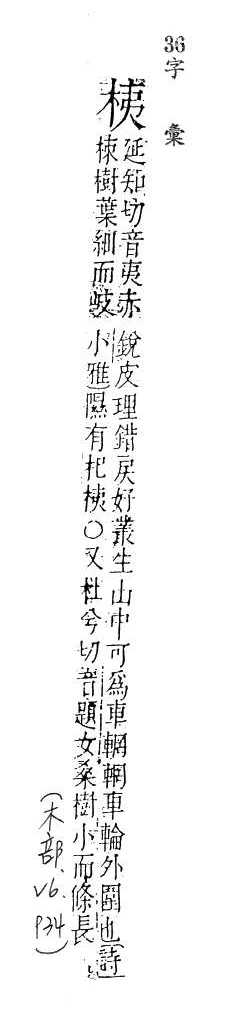 36
字彙
桋
延知切音夷赤
梀樹葉細而岐
銳皮理錯戾好叢生山中可為車輞輞車輪外圍也[詩
小雅]隰有杞桋○又杜兮切音題女桑樹小而條長
(木部. v6. p34)